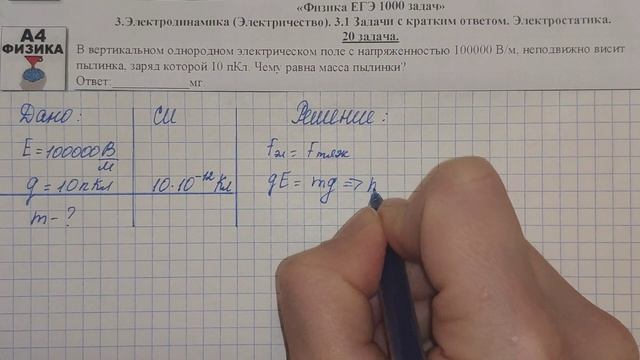 «Физика ЕГЭ 1000 задач»
3.Электродинамика (Электричество). 3.1 Задачи с кратким ответом. Электростатика.
20 задача.
А4
ФИЗИКА
В вертикальном однородном электрическом поле с напряженностью 100000 В/м, неподвижно висит
пылинка, заряд которой 10 пКл. Чему равна масса пылинки?
Ответ:____________мг.
Дано: СИ Решение:
E = 100000 В/м Fэл = Fтяж
q = 10 пКл 10·10⁻¹² Кл qE = mg =>
m - ?